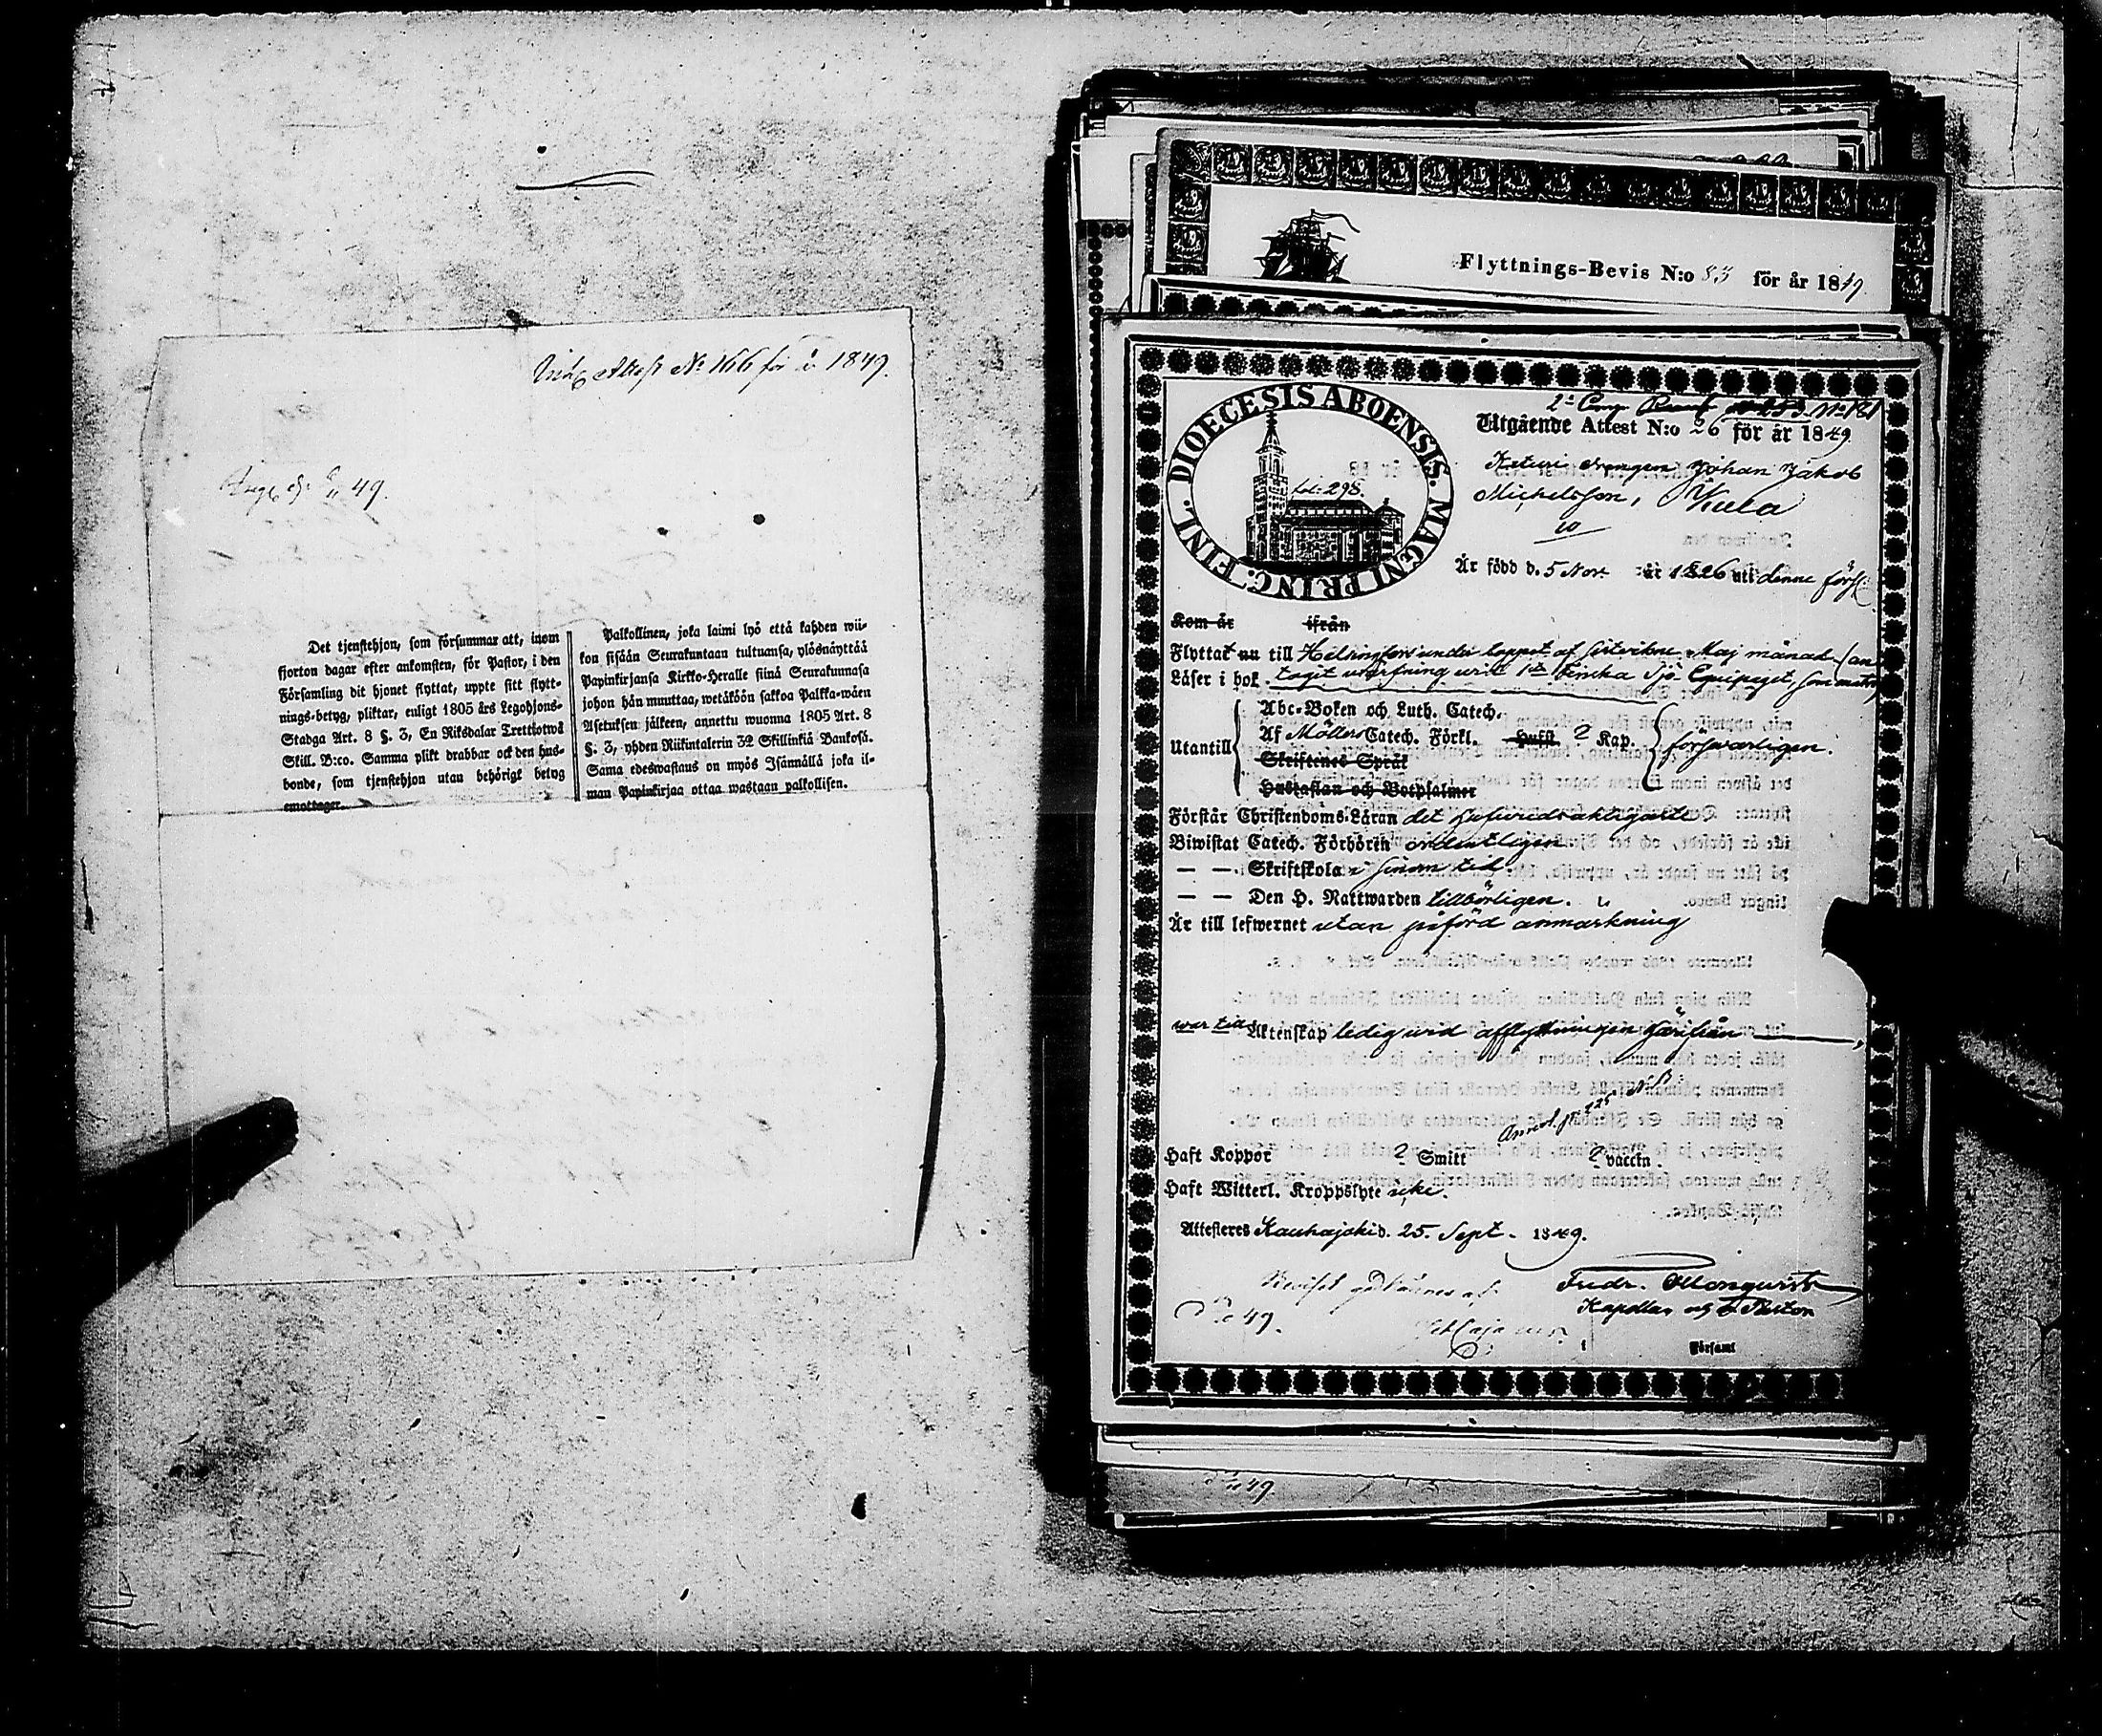 Attest N:o 166 för å 1849.
49.
Det tjenstehjon, som försummar att, inom
fjorton dagar efter ankomsten, för Pastor, i den
Församling dit hjonet flyttat, uppte sitt flytt-
nings-betyg, pliktar, enligt 1805 års Legohjons-
Stadga Art. 8 §. 3, En Riksdalar Trettiotwå
Skill. B:co. Samma plikt drabbar ock den hus-
bonde, som tjenstehjon utan behörigt betyg
emottager.
Palkollinen, joka laimi lyö että kahden wii-
kon sisään Seurakuntaan tultuansa, ylösnäyttää
Papinkirjansa Kirkko-Heralle siinä Seurakunnasa
johon hän muuttaa, wetäköön sakkoa Palkka-wäen
Asetuksen jälkeen, annettu wuonna 1805 Art. 8
§. 3, yhden Riikintalerin 32 Skillinkiä Bankosa.
Sama edeswastaus on myös Isännällä joka il-
man Papinkirjaa ottaa wastaan palkollisen.
Flyttnings-Bevis N:o 83 för år 1849.
DIOECESIS ABOENSIS. MAGNI PRINC. FINL.
fol: 298.
Utgående Attest N:o 26 för år 1849
drengen Johan Jakob
Michelsson, Kula
Är född d. 5 Nov. år 1826 uti denne förs:
Kom år ifrån
Flyttat nu till Helsingfors under loppet af sistvikne Maj månad (an
Läser i bok. tagit värfning vid 1sta Finska Sjö Equipaget, som
Utantill
Abc-Boken och Luth. Catech.
Af Möllers Catech. Förkl. Husst. 2 Kap.
Skriftenes Språk
Hustaflan och Botpsalmer
försvarligen.
Förstår Christendoms-Läran det
Biwistat Catech. Förhören ordentligen
— — Skriftskola i sinom tid
— — Den H. Nattwarden tillbörligen.
Är till lefwernet utan påförd anmärkning
war till Äktenskap ledig vid afflyttningen härifrån
N.B.
Haft Koppor ? Smitt ? vaccin.
Haft Witterl. Kroppslyte icke.
Attesteres Kauhajoki d. 25. Sept. 1849.
Fredr.
Kapellan och
Församl
49.
49.